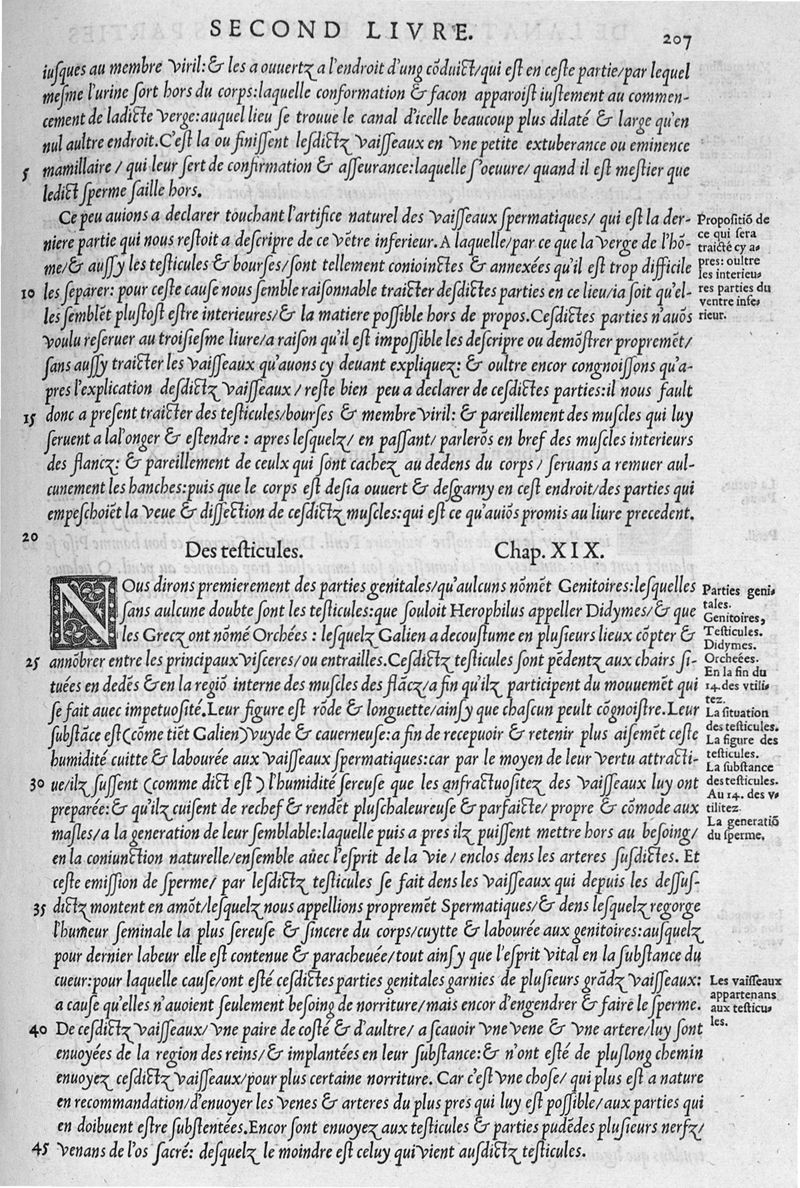 SECOND LIVRE.
207
iusques au membre viril: & les a ouuertz a l'endroit d'ung cõduict/qui est en ceste partie/par lequel
mesme l'urine sort hors du corps: laquelle conformation & facon apparoist iustement au commen-
cement de ladicte verge: auquel lieu se trouue le canal d'icelle beaucoup plus dilaté & large qu'en
nul aultre endroit. C'est la ou finissent lesdictz vaisseaux en vne petite extuberance ou eminence
5 mamillaire/ qui leur sert de confirmation & asseurance: laquelle s'oeuure/ quand il est mestier que
ledict sperme saille hors.
Ce peu auions a declarer touchant l'artifice naturel des vaisseaux spermatiques/ qui est la der-
niere partie qui nous restoit a descripre de ce vẽtre inferieur. A laquelle/par ce que la verge de l'hõ-
me/& aussy les testicules & bourses/sont tellement conioinctes & annexées qu'il est trop difficile
10 les separer: pour ceste cause nous semble raisonnable traicter desdictes parties en ce lieu/ia soit qu'el-
les semblẽt plustost estre interieures/& la matiere possible hors de propos. Cesdictes parties n'auõs
voulu reseruer au troisiesme liure/a raison qu'il est impossible les descripre ou demõstrer propremẽt/
sans aussy traicter les vaisseaux qu'auons cy deuant expliquez: & oultre encor congnoissons qu'a-
pres l'explication desdictz vaisseaux/ reste bien peu a declarer de cesdictes parties: il nous fault
15 donc a present traicter des testicules/bourses & membre viril: & pareillement des muscles qui luy
seruent a lal'onger & estendre: apres lesquelz/ en passant/ parlerõs en bref des muscles interieurs
des flancz: & pareillement de ceulx qui sont cachez au dedens du corps/ seruans a remuer aul-
cunement les hanches: puis que le corps est desia ouuert & desgarny en cest endroit/des parties qui
empeschoiẽt la veue & dissection de cesdictz muscles: qui est ce qu'auiõs promis au liure precedent.
Propositiõ de
ce qui sera
traicté cy a-
pres: oultre
les interieu-
res parties du
ventre infe-
rieur.
20
Des testicules. Chap. XIX.
NOus dirons premierement des parties genitales/qu'aulcuns nõmẽt Genitoires: lesquelles
sans aulcune doubte sont les testicules: que souloit Herophilus appeller Didymes/& que
les Grecz ont nõmé Orchées: lesquelz Galien a decoustume en plusieurs lieux cõpter &
25 annõbrer entre les principaux visceres/ou entrailles. Cesdictz testicules sont pẽdentz aux chairs si-
tuées en dedẽs & en la regiõ interne des muscles des flãcz/a fin qu'ilz participent du mouuemẽt qui
se fait auec impetuosité. Leur figure est rõde & longuette/ainsy que chascun peult cõgnoistre. Leur
substãce est (cõme tiẽt Galien) vuyde & cauerneuse: a fin de recepuoir & retenir plus aisemẽt ceste
humidité cuitte & labourée aux vaisseaux spermatiques: car par le moyen de leur vertu attracti-
30 ue/ilz sussent (comme dict est) l'humidité sereuse que les anfractuositez des vaisseaux luy ont
preparée: & qu'ilz cuisent de rechef & rendẽt pluschaleureuse & parfaicte/ propre & cõmode aux
masles/a la generation de leur semblable: laquelle puis a pres ilz puissent mettre hors au besoing/
en la coniunction naturelle/ensemble auec l'esprit de la vie/ enclos dens les arteres susdictes. Et
ceste emission de sperme/ par lesdictz testicules se fait dens les vaisseaux qui depuis les dessus-
35 dictz montent en amõt/lesquelz nous appellions propremẽt Spermatiques/& dens lesquelz regorge
l'humeur seminale la plus sereuse & sincere du corps/cuytte & labourée aux genitoires: ausquelz
pour dernier labeur elle est contenue & paracheuée/tout ainsy que l'esprit vital en la substance du
cueur: pour laquelle cause/ont esté cesdictes parties genitales garnies de plusieurs grãdz vaisseaux:
a cause qu'elles n'auoient seulement besoing de norriture/mais encor d'engendrer & faire le sperme.
40 De cesdictz vaisseaux/ vne paire de costé & d'aultre/ a scauoir vne vene & vne artere/luy sont
enuoyées de la region des reins/& implantées en leur substance: & n'ont esté de pluslong chemin
enuoyez cesdictz vaisseaux/pour plus certaine norriture. Car c'est vne chose/ qui plus est a nature
en recommandation/d'enuoyer les venes & arteres du plus pres qui luy est possible/aux parties qui
en doibuent estre substentées. Encor sont enuoyez aux testicules & parties pudẽdes plusieurs nerfz/
45 venans de l'os sacré: desquelz le moindre est celuy qui vient ausdictz testicules.
Parties geni-
tales.
Genitoires,
Testicules.
Didymes.
Orcheées.
En la fin du
14. des vtili-
tez.
La situation
des testicules.
La figure des
testicules.
La substance
des testicules.
Au 14. des v-
tilitez
La generatiõ
du sperme.
Les vaisseaux
appartenans
aux testicu-
les.